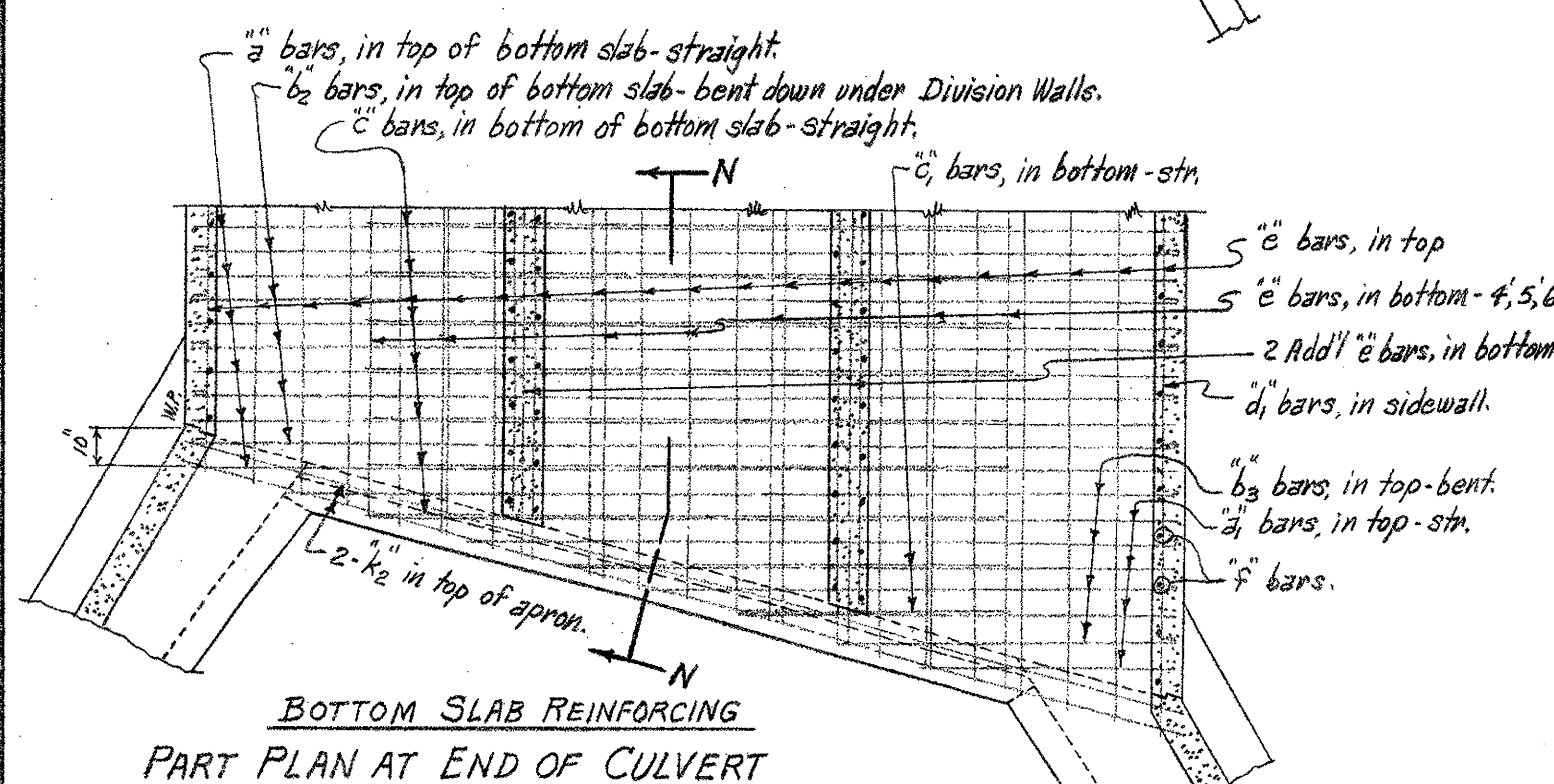 "a" bars, in top of bottom slab-straight.
"b2" bars, in top of bottom slab-bent down under Division Walls.
"c" bars, in bottom of bottom slab-straight.
N
"c1" bars, in bottom-str.
"e" bars, in top
"e" bars, in bottom-4', 5', 6
2 Add'l "e" bars, in bottom
"d1" bars, in sidewall.
W.P.
10"
"b3" bars, in top-bent.
"a1" bars, in top-str.
"f" bars.
2-"k2" in top of apron.
N
BOTTOM SLAB REINFORCING
PART PLAN AT END OF CULVERT